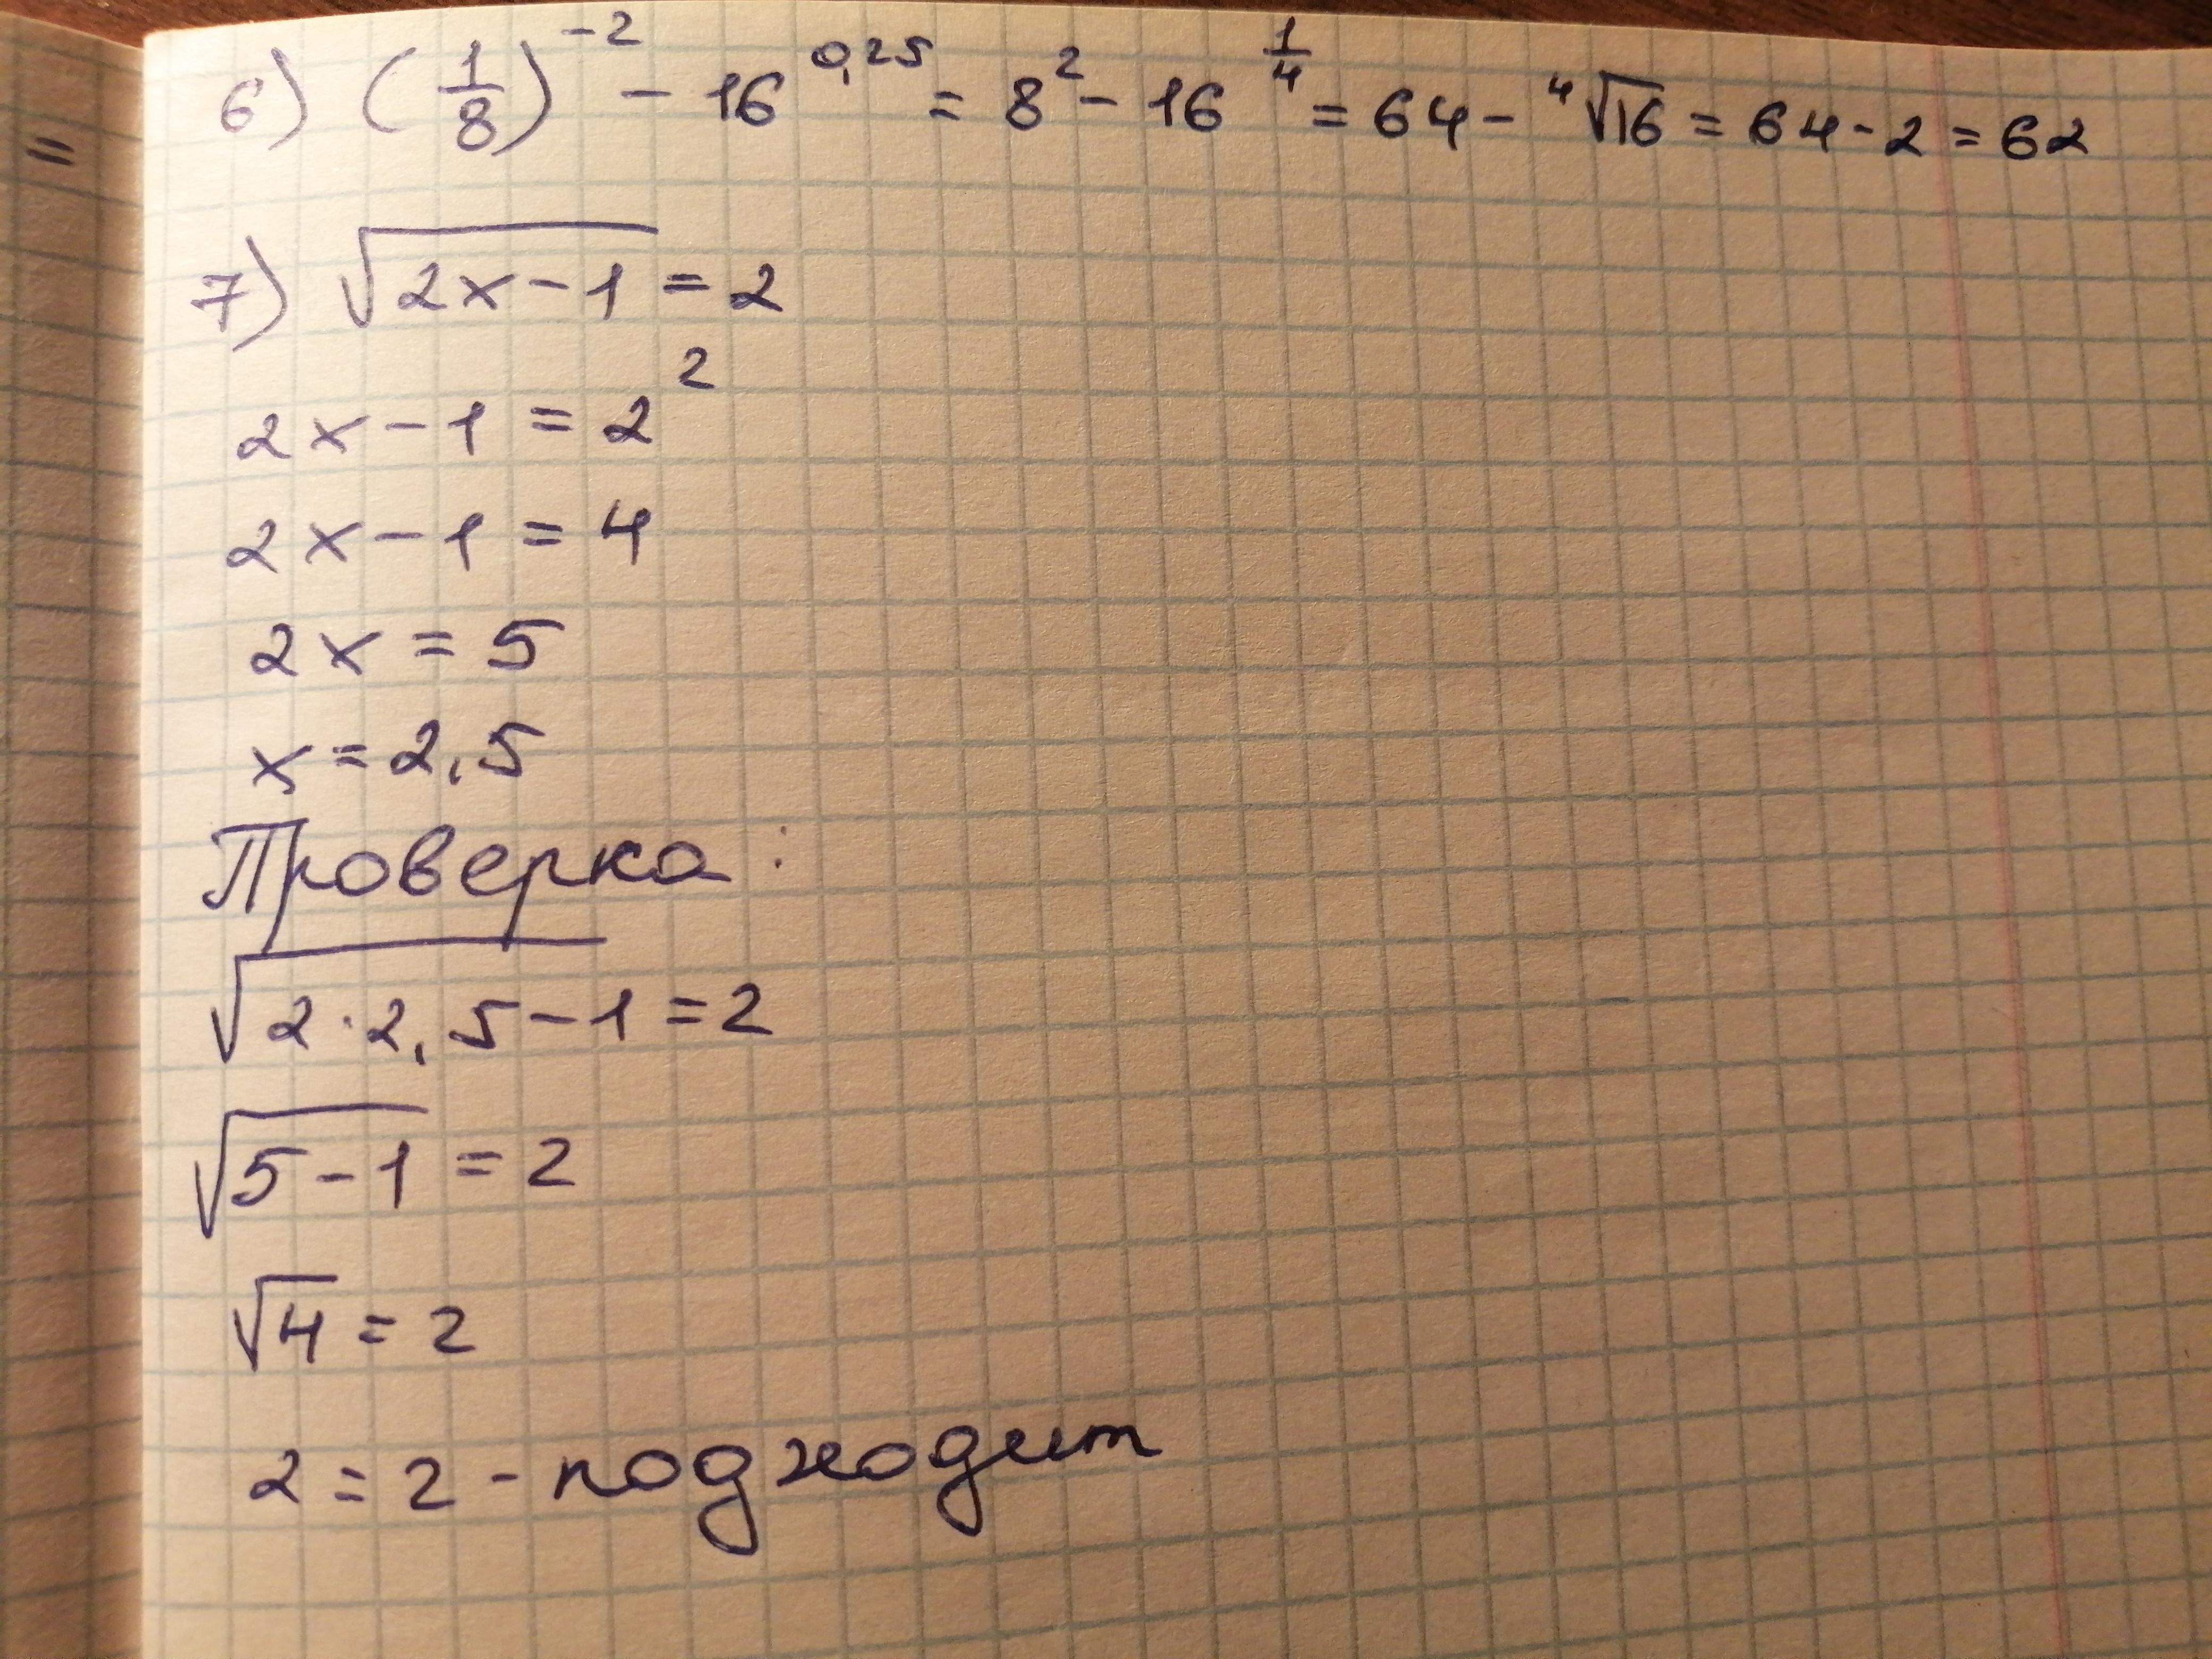 =
6) (1/8)^-2 - 16^0,25 = 8^2 - 16^1/4 = 64 - ⁴√16 = 64 - 2 = 62
7) √(2x-1) = 2
2x - 1 = 2^2
2x - 1 = 4
2x = 5
x = 2,5
Проверка:
√(2·2,5-1) = 2
√(5-1) = 2
√4 = 2
2 = 2 - подходит